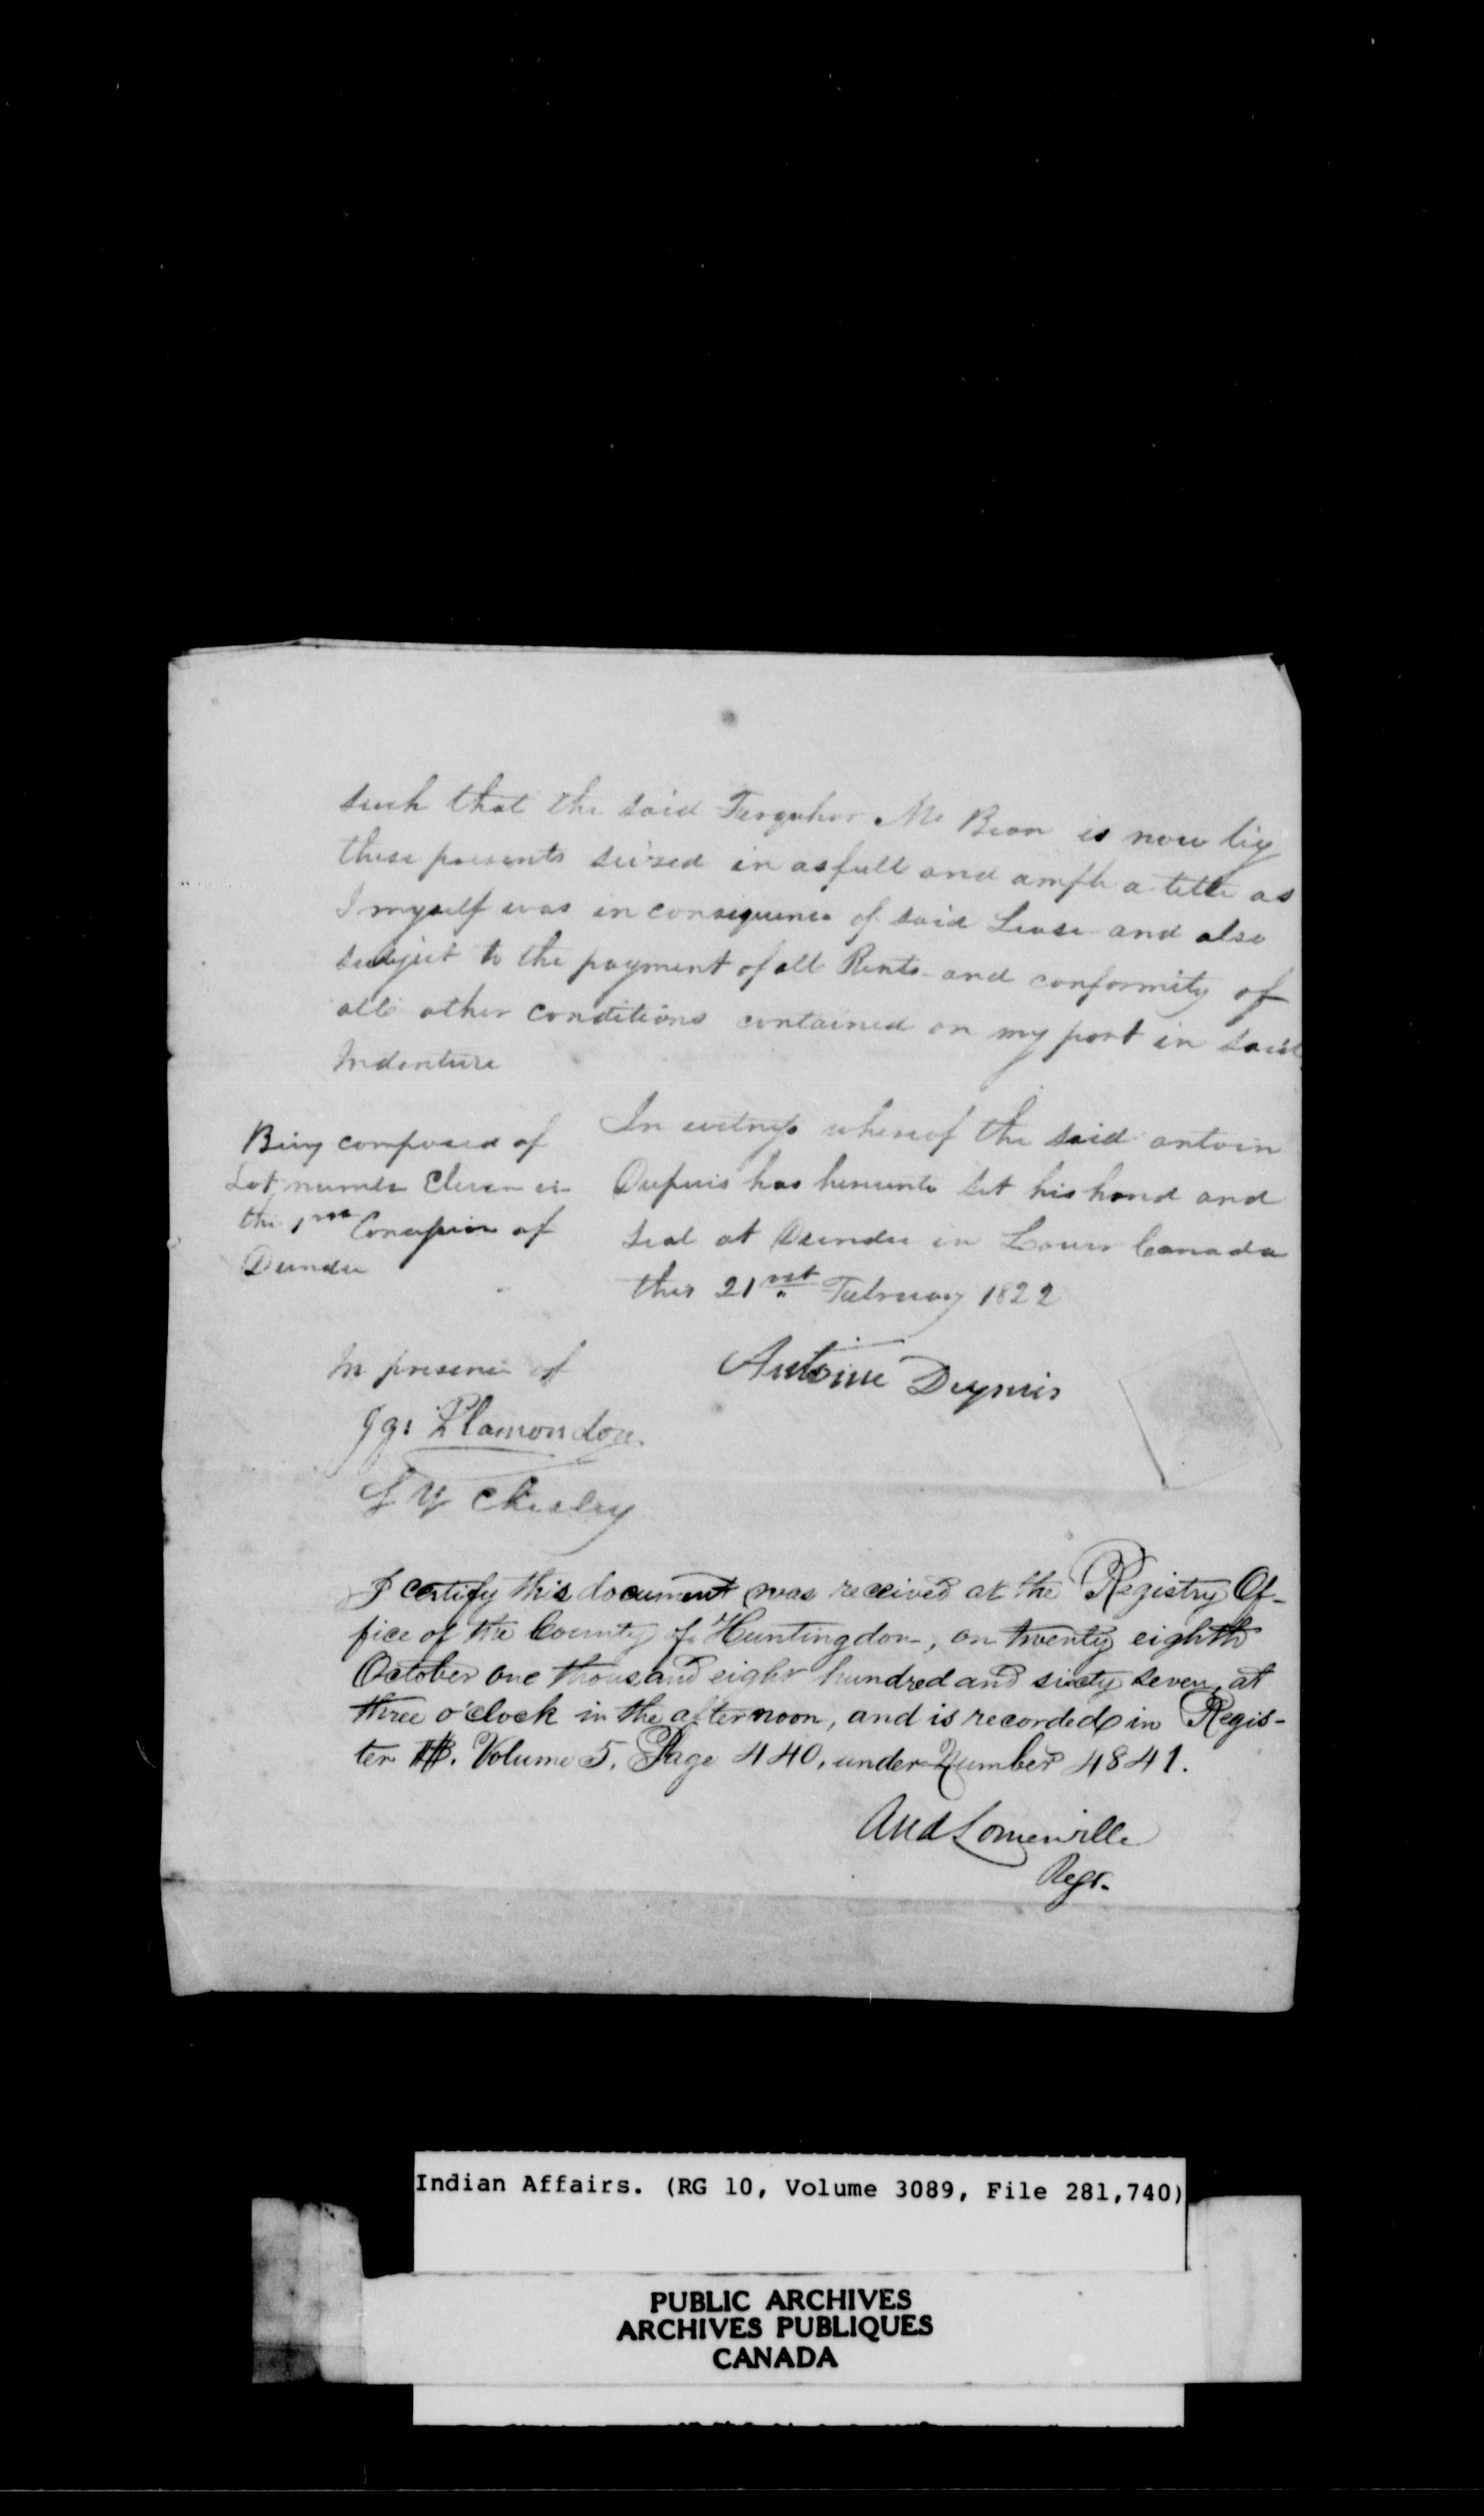 such that the said Ferquhar Mc Bean is now by
these presents seized in as full and ample a title as
I myself was in consequence of said Lease and also
subject to the payment of all Rents and conformity of
all other conditions contained on my part in said
Indenture
Being composed of
Lot number Eleven in
the 1st Concession of
Dundee
In witness whereof the said antoin
Dupuis has hereunto set his hand and
seal at Dundee in Lower Canada
this 21st February 1822
In presence of
Antoine Dupuis
Plamondon
S Y Chesley
I certify this document was received at the Registry Of-
fice of the County of Huntingdon, on twenty eighth
October one thousand eight hundred and sixty seven, at
three o'clock in the afternoon, and is recorded in Regis-
ter B. Volume 5. Page 440. under Number 4841.
And Somerville
Regr.
Indian Affairs. (RG 10, Volume 3089, File 281,740)
PUBLIC ARCHIVES
ARCHIVES PUBLIQUES
CANADA